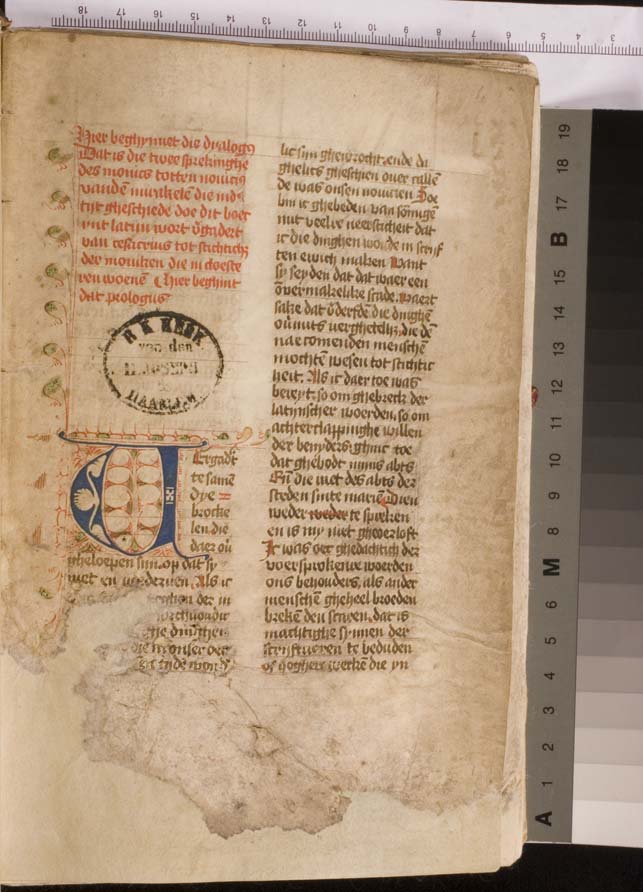 Hier beghynnet die dyalogus
Dat is die twee sprekinghe
des monics totten noviciū
vanden myrakelē die in d
tijt gheschiede doe dit boec
wt latijn wort v̄gadert
van cesarius tot stichticheit
der moniken die in doeste
ren woenē Hier beghint
dat prologus
R K KERK
van den
H. JOSEPH
HAARLEM
Ergadert
te samē
dye
brocke
len die
daer ou
gheloepen sijn op dat sy
niet en verderuen Als ic
der in
ghe dinghen
die in onser oer
tijde
lic sijn ghewrocht ende da
ghelics gheschien ouer castē
de was onsen nouicien Soe
bin ic ghebeden van sōmighē
mit veelre neersticheit dat
ic die dinghen worde in scrif
ten ewich maken Want
sy seyden dat dat waer een
ōvermakelike scade. Waert
sake dat v̄derfde die dinghē
ouūits verghetelicheit die dē
nae comenden menschē
mochtē wesen tot stichtic
heit. Als ic daer toe was
bereyt, so om ghebreck der
latijnscher woerden, so om
achterclappinghe willen
der benyders ghinc toe
dat ghebodt mijns abts
Eñ die niet des abts der
steden sinte mariē Dien
weder weder te spreken
en is my niet gheoerloft
Ic was oec ghedachtich der
voersprokenre woerden
ons behouders, als ander
menschē gheheel broeden
breken den scaren, dat is
machtighe sijnnen der
scriftueren te beduden
of hoghere wercke die yn
18 17 16 15 14 13 12 11 10 9 8 7 6 5 4 3
A 1 2 3 4 5 6 M 8 9 10 11 12 13 14 15 B 17 18 19